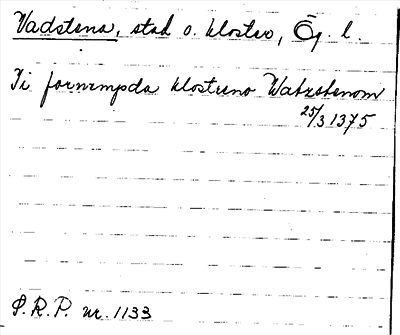 Vadstena, stad o. kloster, Ög. l.
Ti fornempda klostreno Watzstenom
25/3 1375
S.R.P. nr. 1133